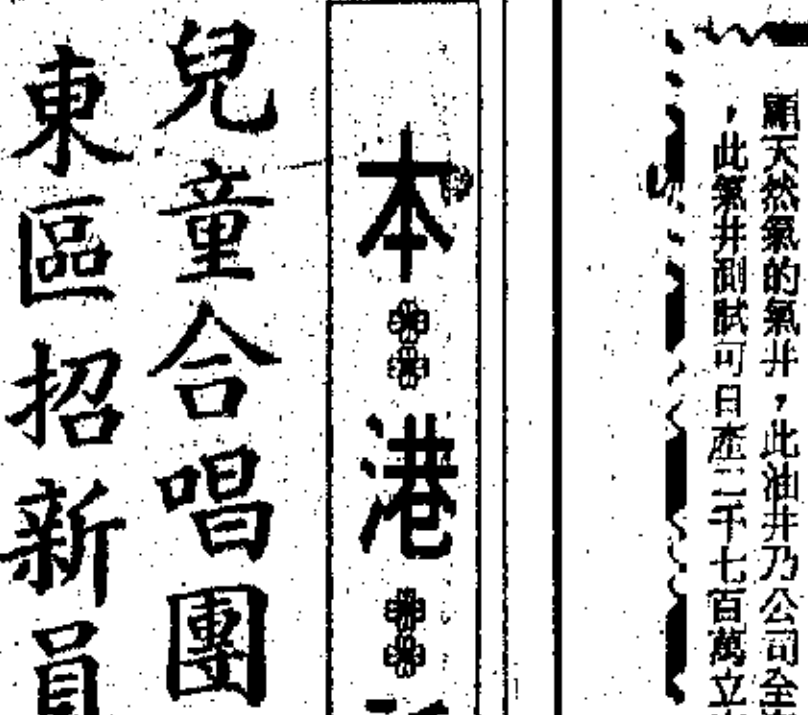 顯天然氣的氣井，此油井乃公司全
，此氣井測試可日產二千七百萬立
本港
兒童合唱團
東區招新員